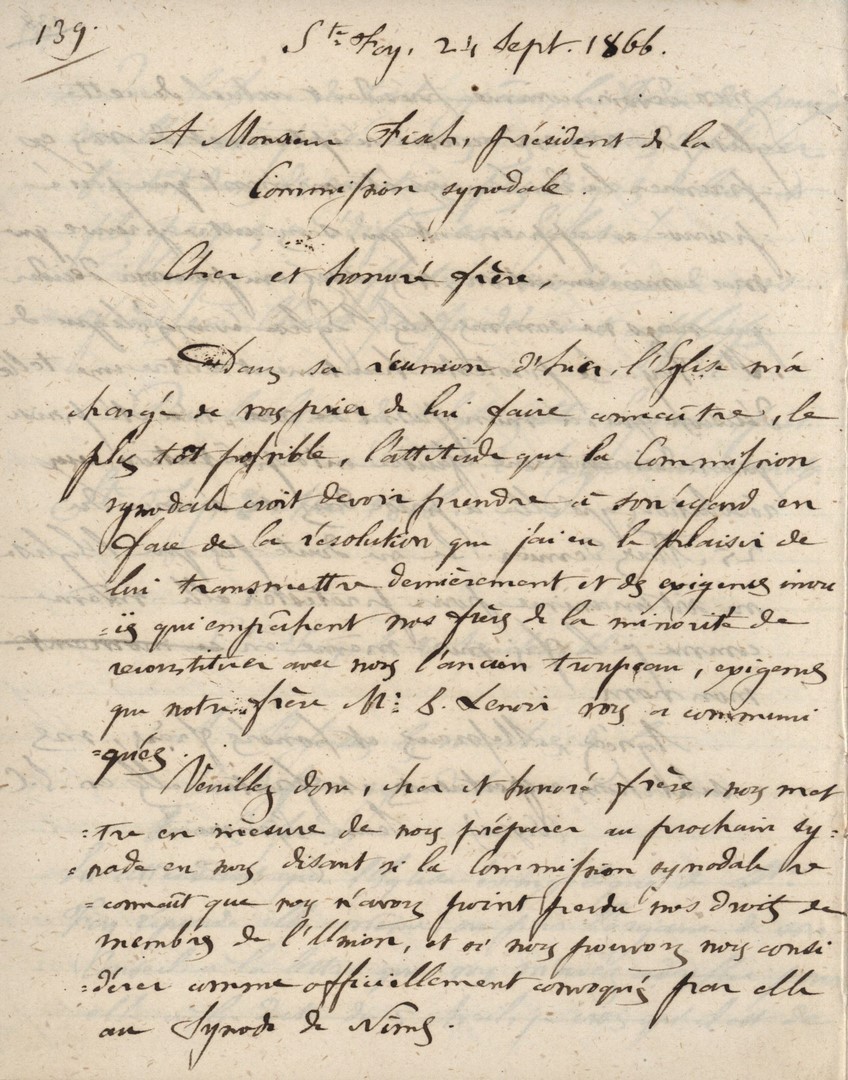 139.
Ste Foy, 24 Sept. 1866.
A Monsieur Fisch, président de la
Commission synodale.
Cher et honoré frère,
Dans sa réunion d'hier, l'Eglise m'a
chargé de vous prier de lui faire connaître, le
plus tôt possible, l'attitude que la Commission
synodale croit devoir prendre à son égard en
face de la résolution que j'ai eu le plaisir de
lui transmettre dernièrement et des exigences inou
=ïes qui empêchent nos frères de la minorité de
reconstituer avec nous l'ancien troupeau, exigences
que notre frère Mr: S. Lenoir vous a communi
=quées.
Veuillez donc, cher et honoré frère, nous met
=tre en mesure de nous préparer au prochain sy=
=node en nous disant si la Commission synodale re
=connaît que nous n'avons point perdu nos droits de
membres de l'Union, et si nous pouvons nous consi
=dérer comme officiellement convoqués par elle
au Synode de Nîmes.